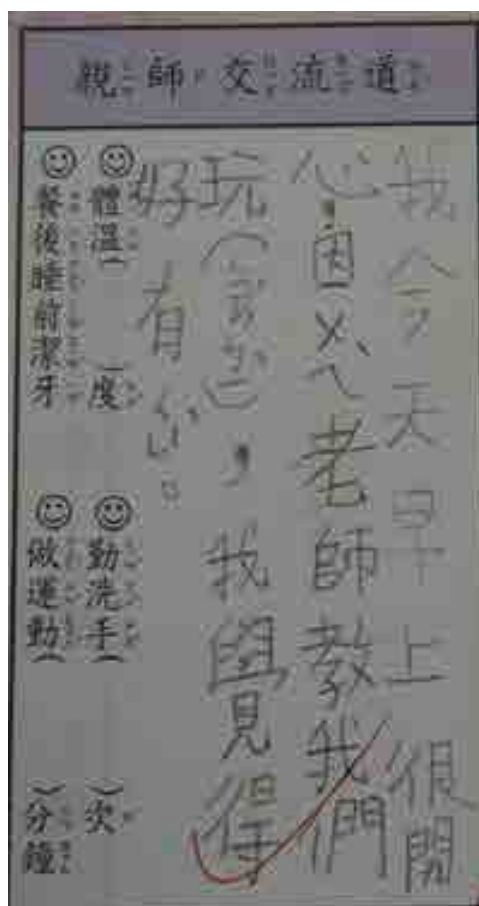 親師交流道
我今天早上很開
心,因ㄨㄟ老師教我們
玩,我覺得
好有
體溫( )度
勤洗手( )次
餐後睡前潔牙
做運動( )分鐘